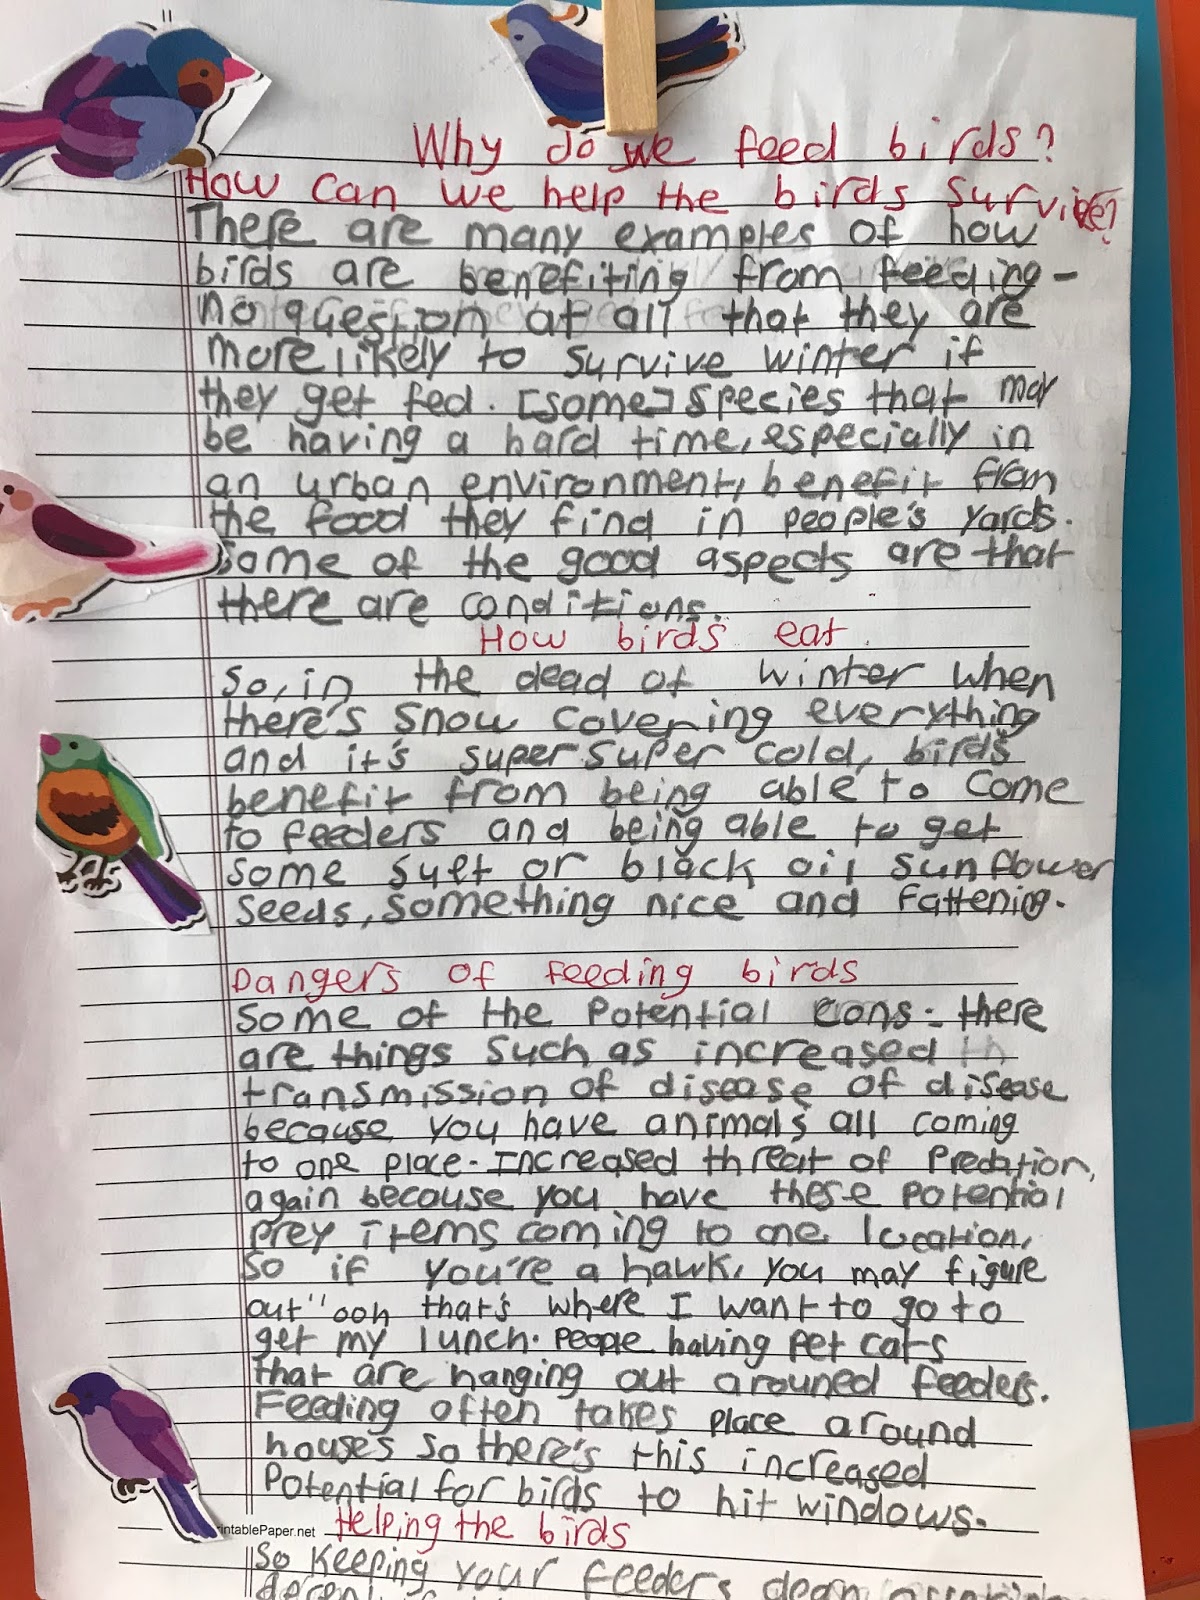 Why do we feed birds?
How can we help the birds survive?
There are many examples of how
birds are benefiting from feeding-
no question at all that they are
more likely to survive winter if
they get fed. [some] species that may
be having a hard time, especially in
an urban environment, benefit from
the food they find in people's yards.
Some of the good aspects are that
there are conditions.
How birds eat.
So, in the dead of winter when
there's snow covering everything
and it's super super cold, birds
benefit from being able to come
to feeders and being able to get
some suet or black oil sunflower
seeds, something nice and fattening.
Dangers of feeding birds
Some of the potential cons - there
are things such as increased
transmission of disease of disease
because you have animals all coming
to one place. Increased threat of predation,
again because you have these potential
prey items coming to one location,
So if you're a hawk, you may figure
out "ooh that's where I want to go to
get my lunch. People having pet cats
that are hanging out arouned feeders.
Feeding often takes place around
houses so there's this increased
potential for birds to hit windows.
intablePaper.net
Helping the birds
So keeping your feeders clean